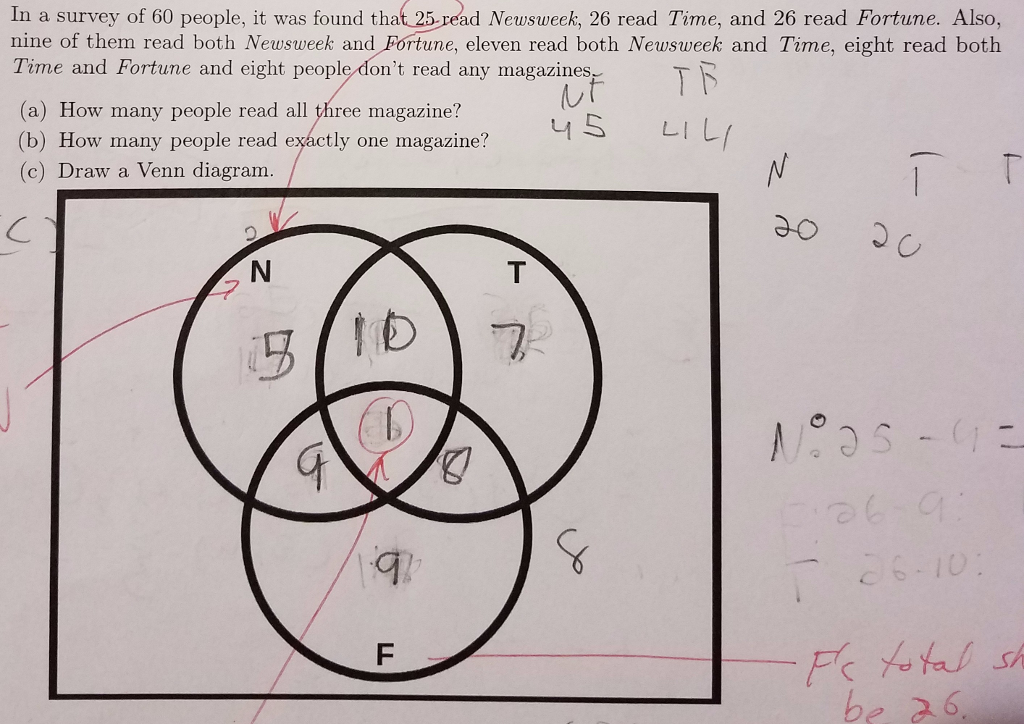 In a survey of 60 people, it was found that 25 read Newsweek, 26 read Time, and 26 read Fortune. Also,
nine of them read both Newsweek and Fortune, eleven read both Newsweek and Time, eight read both
Time and Fortune and eight people don't read any magazines.
(a) How many people read all three magazine?
(b) How many people read exactly one magazine?
(c) Draw a Venn diagram.
NF
45
N T T
20 20
C)
2
N T
5 10 7
1
9 8
9
8
F
N: 25 - 4 =
F: 26-9:
T 26-10:
F's total sh
be 26.